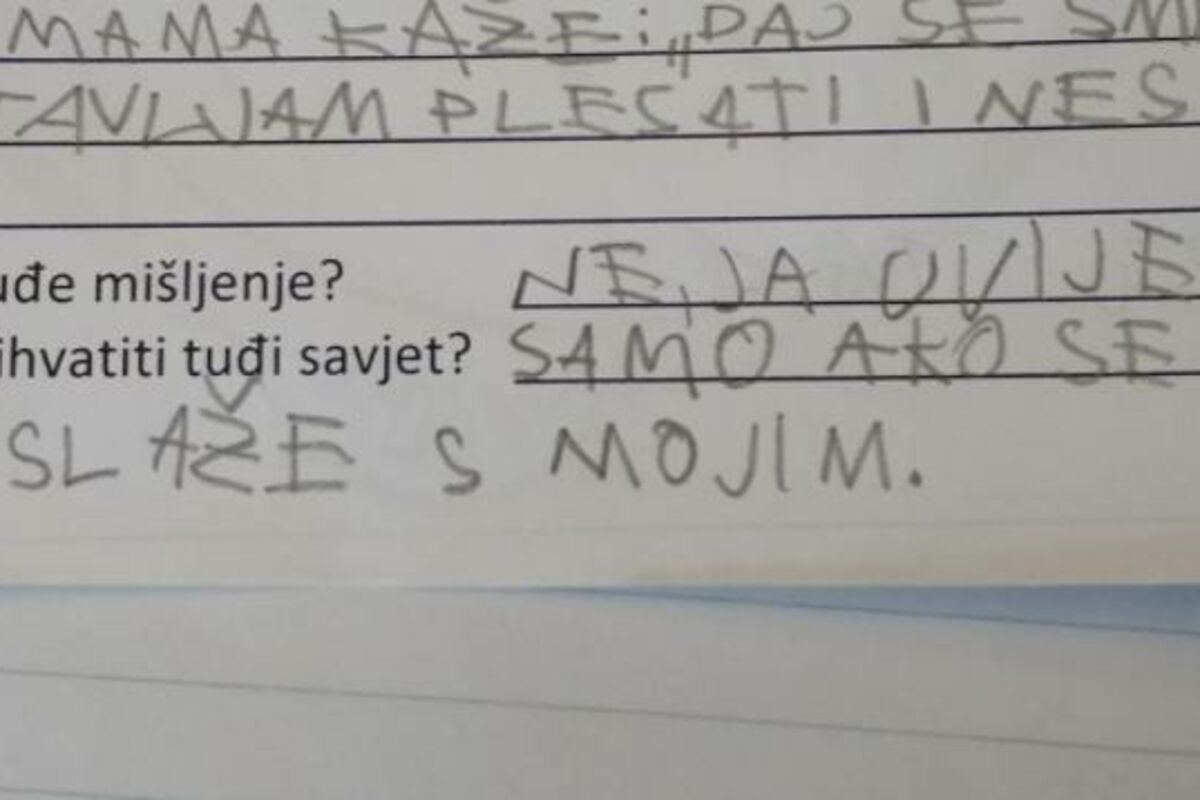 MAMA KAŽE: „DAJ SE SMI
TAVLJAM PLESATI I NES
uđe mišljenje? NE, JA UVIJE
ihvatiti tuđi savjet? SAMO AKO SE
SLAŽE S MOJIM.